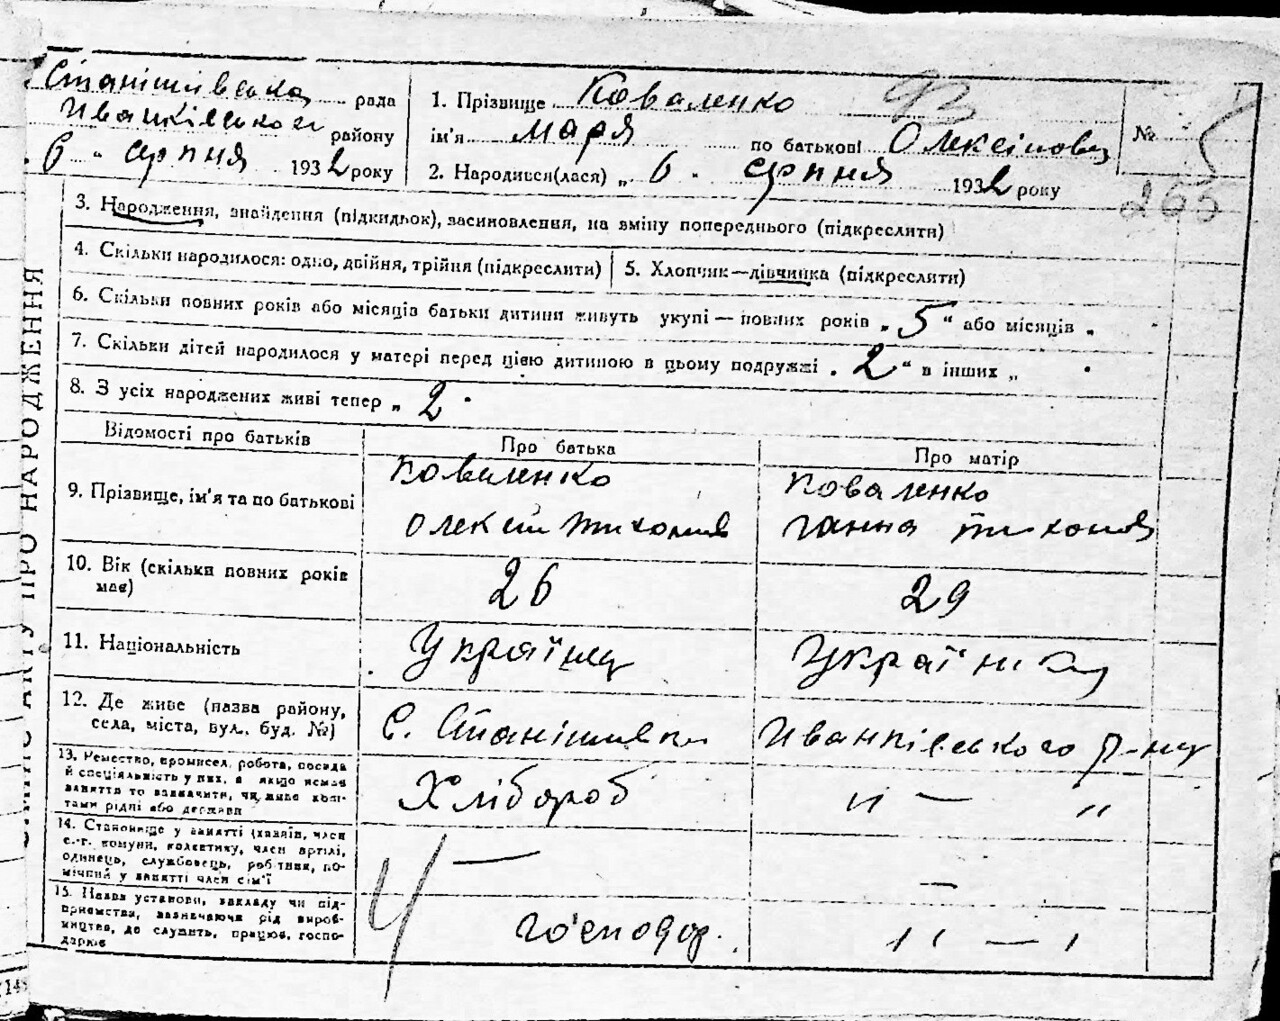 Станішівська рада
Иванківського району
6 " серпня 1932 року
1. Прізвище Коваленко
ім'я Маря по батькові Олексіовна
2. Народився(лася) „ 6 " серпня 1932 року
№
93
265
3. Народження, знайдення (підкидьок), засиновлення, на зміну попереднього (підкреслити)
4. Скільки народилося: одно, двійня, трійня (підкреслити)
5. Хлопчик—дівчинка (підкреслити)
6. Скільки повних років або місяців батьки дитини живуть укупі — повних років „ 5 " або місяців „ "
7. Скільки дітей народилося у матері перед цією дитиною в цьому подружжі „ 2 " в інших „ "
8. З усіх народжених живі тепер „ 2 "
Відомості про батьків
Про батька
Про матір
9. Прізвище, ім'я та по батькові
Коваленко
Олексій Тихонив
Коваленко
Ганна Тихонов
10. Вік (скільки повних років має)
26
29
11. Національність
Українц
Українка
12. Де живе (назва району,
села, міста, вул., буд. №)
С. Станішивки
Иванківського р-ну
13. Ремество, промисел, робота, посада
й спеціяльність у них, а якщо немає
заняття то зазначити, чи живе кош-
тами рідні або держави
Хлібороб
" — "
14. Становище у занятті (хазяїн, член
с.-г. комуни, колективу, член артілі,
одинець, службовець, робітник, по-
мічний у занятті член сім'ї
—
—
15. Назва установи, закладу чи під-
приємства, зазначаючи рід вироб-
ництва, де служить, працює, госпо-
дарює
господар.
" — "
ПРО НАРОДЖЕННЯ